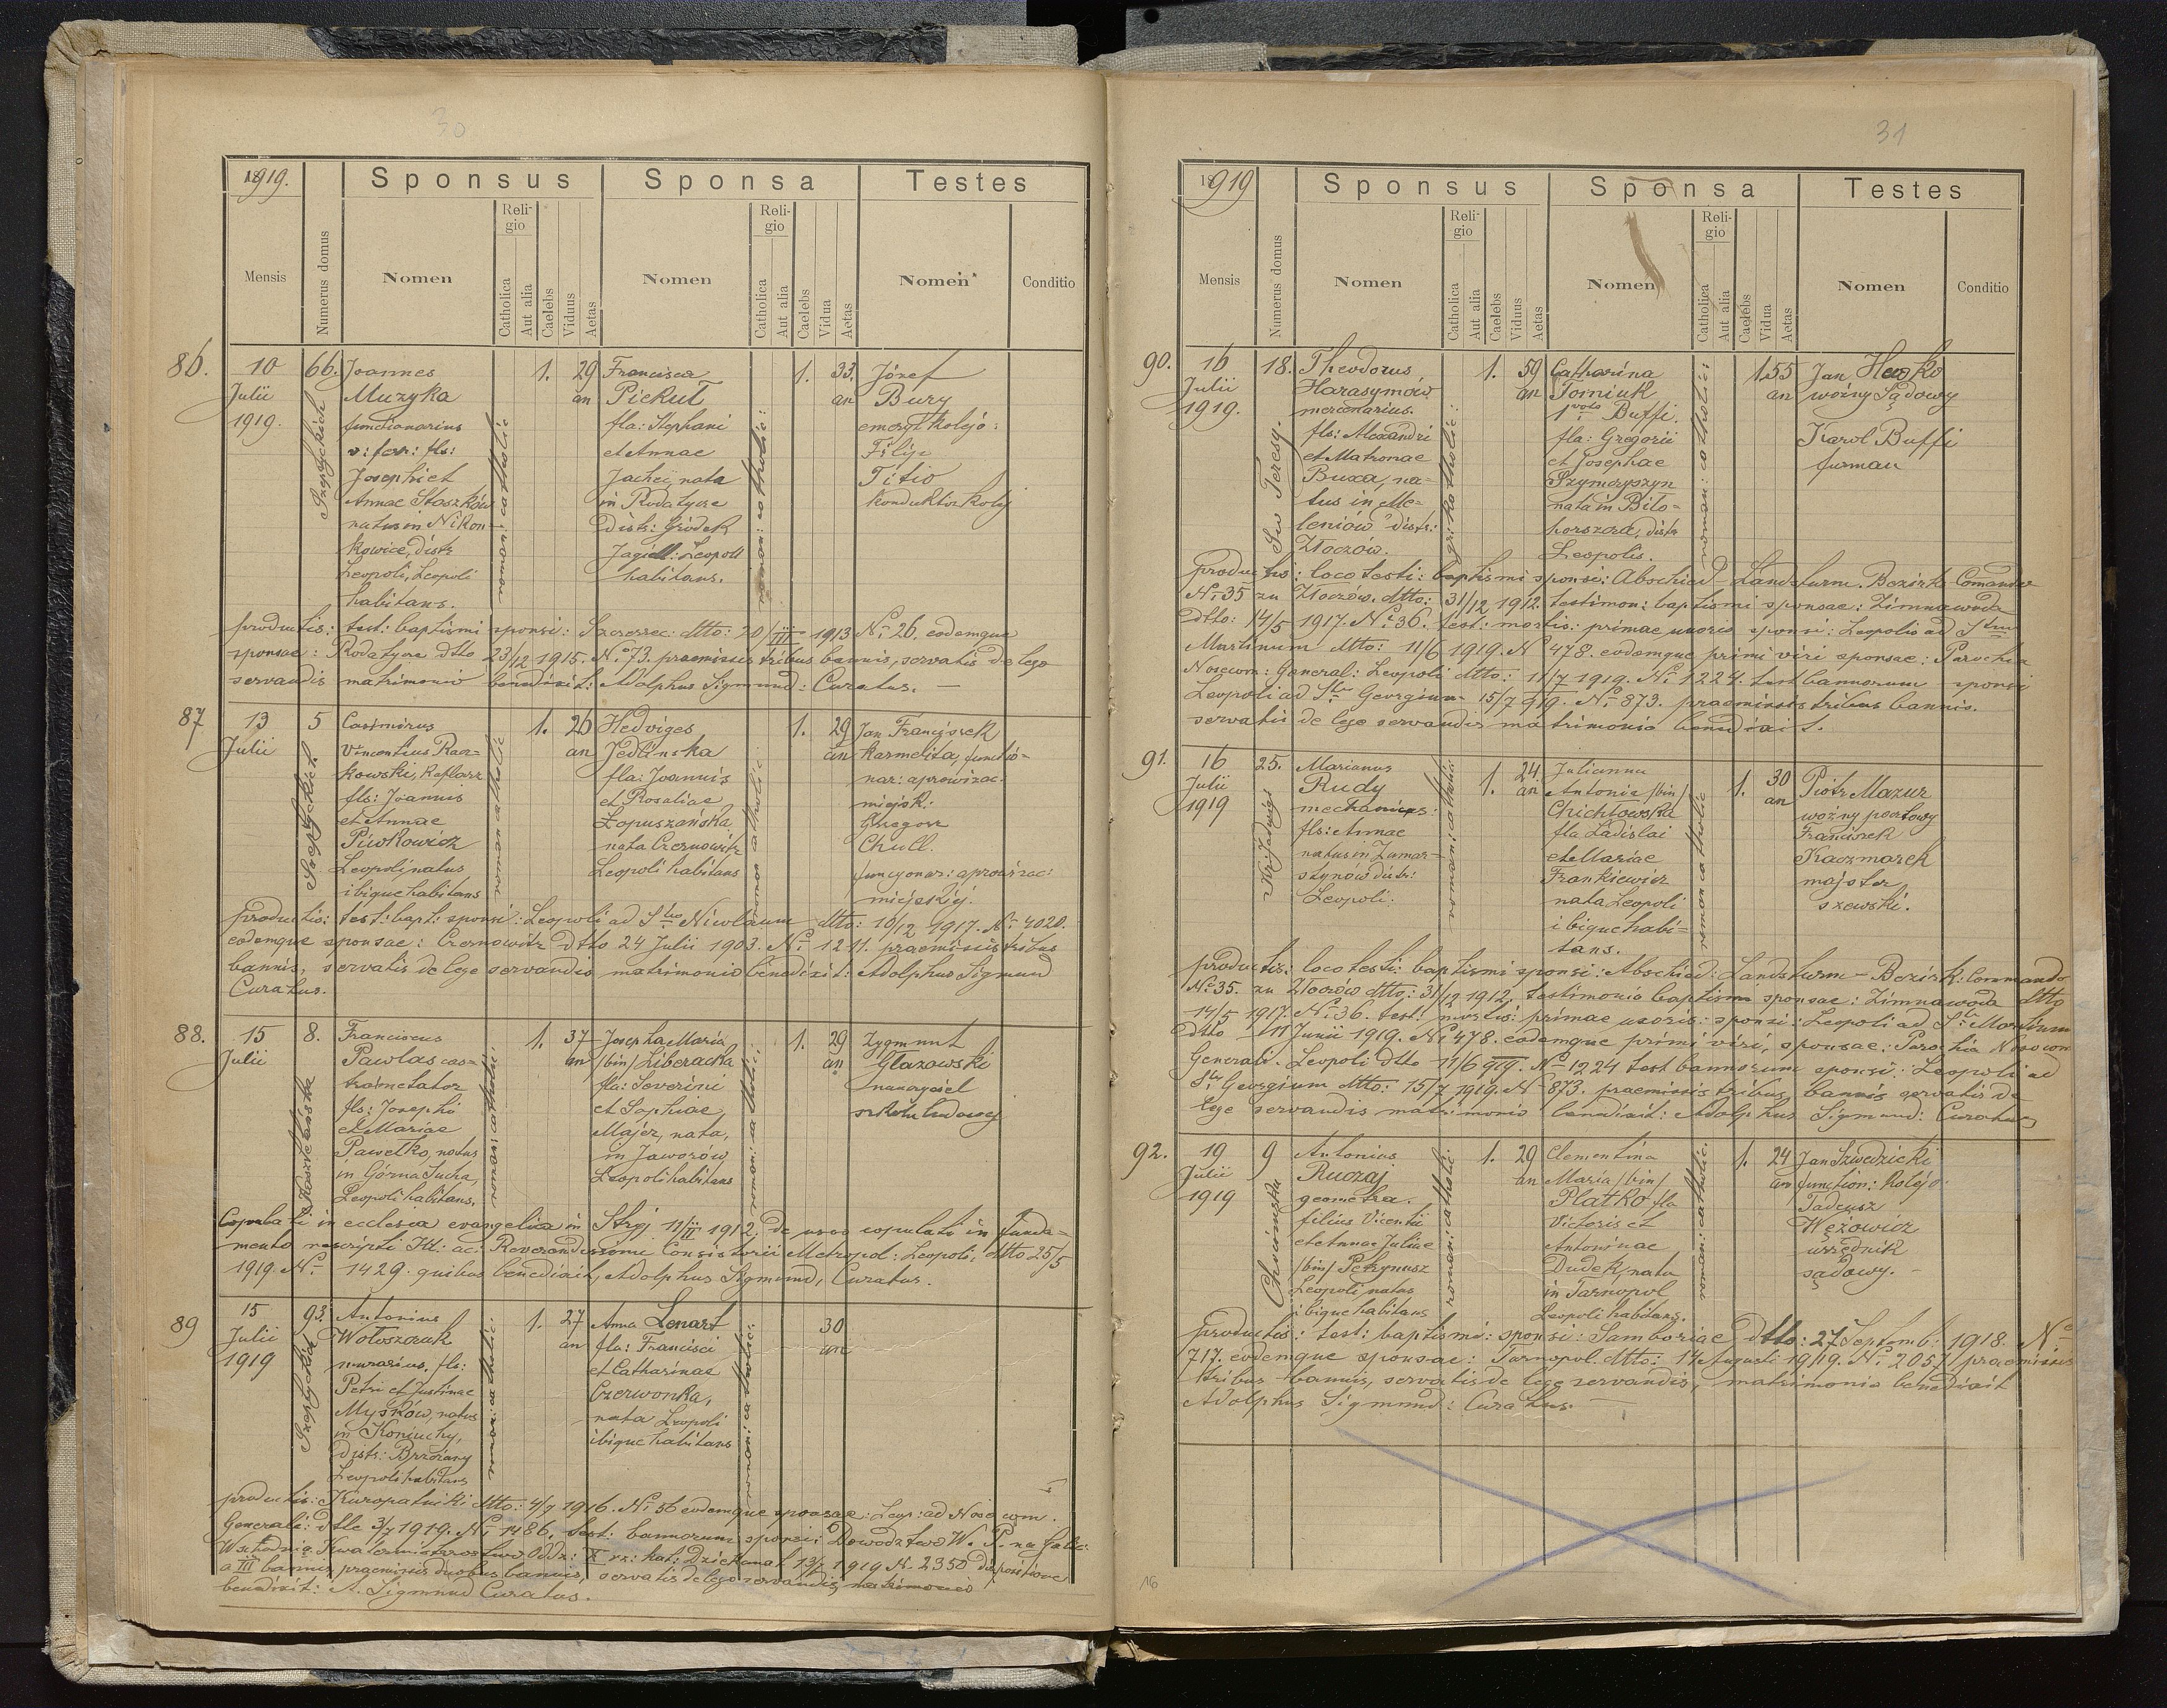 30
1919.
Sponsus
Sponsa
Testes
Mensis
Numerus domus
Nomen
Religio
Catholica
Aut alia
Caelebs
Viduus
Aetas
Nomen
Religio
Catholica
Aut alia
Caelebs
Vidua
Aetas
Nomen
Conditio
86.
10
Julii
1919.
66.
Szeptyckich
Joannes
Muzyka
functionarius
v: ferr: fls:
Josephi et
Annae Staszków
natus in Nikon-
kowice, distr
Leopoli, Leopoli
habitans.
roman: catholic:
1.
29
an
Francisca
Piekut
fla: Stephani
et Annae
Jachei, nata
in Rodatycze
Distr: Gródek
Jagiell: Leopoli
habitans.
roman: catholic:
1.
33.
an
Józef
Bury
emeryt kolejo:
Filip
Titio
konduktor kolej
productis: test: baptismi sponsi: Szczerzec: dtto: 20/III 1913 No 26. eodemque
sponsae: Rodatycze dtto 23/12 1915. No 73. praemissis tribus bannis, servatis de lege
servandis matrimonio benedixit: Adolphus Sigmund: Curatus. —
87
13
Julii
5
Szeptyckich
Casimirus
Vincentius Racz-
kowski, kaflarz
fls: Joannis
et Annae
Piwkowicz
Leopoli natus
ibique habitans
roman catholic
1.
26
an
Hedviges
Jedlińska
fla: Joannis
et Rosaliae
Łopuszańska
nata Czernowitz
Leopoli habitans
roman catholic
1.
29
an
Jan Franciszek
Karmelita, functio-
nar: aprowizac.
miejsk:
Grzegorz
Chull.
funcyonar: aprowizac:
miejskiej.
productis: test: bapt: sponsi: Leopoli ad Stum Nicolaum dtto: 10/12 1917. No 4020.
eodemque sponsae: Czernowitz dtto 24 Julii 1903. No 1211. praemissis tribus
bannis, servatis de lege servandis matrimonio benedixit: Adolphus Sigmund
Curatus.
88.
15
Julii
8.
Franciscus
Pawlas cas-
trametator
fls: Josephi
et Mariae
Pawełko, natus
in Górna Sucha,
Leopoli habitans.
roman: catholic:
1.
37
an
Josepha Maria
/bin/ Liberacka
fla: Severini
et Sophiae
Majer, nata,
in Jaworów
Leopoli habitans
roman: catholic:
1.
29
an
Zygmunt
Głazowski
nauczyciel
szkoły ludowej
Copulati in ecclesia evangelica in Stryj 11/II 1912, de novo copulati in funda-
mento rescripti Ill: ac: Reverendissimi Consistorii Metropol: Leopoli, dtto 25/5
1919. No 1429. quibus benedixit, Adolphus Sigmund, Curatus.
89
15
Julii
1919
93.
Szeptyckich
Antonius
Wołoszczuk
murarius, fls:
Petri et Justinae
Myśków, natus
in Koniuchy,
Distr: Brzeżany
Leopoli habitans
roman: catholic:
1.
27
an
Anna Lenart
fla: Francisci
et Catharinae
Czerwonka,
nata Leopoli
ibique habitans
roman: catholic:
30
an
productis: Kuropatniki dtto: 4/7 1916. No 56 eodemque sponsae: Leop: ad Nosocom.
Generale: dtto 3/7 1919. No 1486, test: bannorum sponsi: Dowództwo W. P. na Galic:
Wschodnią. Kwatermistrzostwo Oddz: X rz: kat: Dziekanat 13/7 1919 N. 2350 dispositione
a III bannis praemissis duobus bannis, servatis de lege servandis matrimonio
benedixit: A. Sigmund Curatus.
31
1919
Sponsus
Sponsa
Testes
Mensis
Numerus domus
Nomen
Religio
Catholica
Aut alia
Caelebs
Viduus
Aetas
Nomen
Religio
Catholica
Aut alia
Caelebs
Vidua
Aetas
Nomen
Conditio
90.
16
Julii
1919.
18.
Św Teresy.
Theodorus
Harasymów
mercenarius.
fls: Alexandri
et Matronae
Buxa, na-
tus in Me-
leniów distr:
Złoczów.
gr: katholic:
1.
59
an
Catharina
Torniuk
1 voto Buffi.
fla: Gregorii
et Josephae
Szymczyszyn
nata in Biło-
horszcze, distr
Leopolis.
roman: catholic:
1
55
an
Jan
woźny Sądowy
Karol Buffi
furman
productis: loco testi: baptismi sponsi: Abschied – Landsturm. Bezirks Comando
No 35 zu Złoczów. dtto: 31/12 1912. testimon: baptismi sponsae: Zimnawoda
Dtto: 14/5 1917. No 36. test: mortis: primae uxoris sponsi: Leopolis ad Stum
Martinum dtto: 11/6 1919. N 478. eodemque primi viri sponsae: Parochia
Nosocom: General: Leopoli dtto: 11/7 1919. No 1224. test bannorum sponsi
Leopoli ad Stum Georgium 15/7 919. No 873. praemissis tribus bannis.
servatis de lege servandis matrimonio benedixit.
91.
16
Julii
1919
25.
Kr: Jadwigi
Marianus
Rudy
mechanicus:
fls: Annae
natus in Zamar-
stynów distr:
Leopoli.
roman: catholic
1.
1.
24
an
Julianna
Antonia /bin/
Chichłowska
fla Ladislai
et Mariae
Frankiewicz
nata Leopoli
ibique habi-
tans.
roman catholic
1.
30
an
Piotr Mazur
woźny pocztowy
Franciszek
Kaczmarek
majster
szewski.
productis: loco testi: baptismi sponsi: Abschied: Landsturm – Bezirk: Commando
No 35. zu Złoczów dtto: 31/12 1912, testimonio baptism sponsae: Zimnawoda dtto
14/5 1917. No 36. test: mortis: primae uxoris: sponsi: Leopoli ad Stum Martinum
dtto 11 Junii 1919. No 478. eodemque primi viri, sponsae: Parochia Nosocom
Generali. Leopoli dtto 11/6 919. No 1224 test bannorum sponsi: Leopoli ad
Stum Georgium dtto: 15/7 1919. N 873. praemissis tribus, bannis servatis de
lege servandis matrimonio benedixit: Adolphus Sigmund: Curatus
92.
19
Julii
1919
9
Antonius
Ruczaj
geometra.
filius Vicentii
et Annae Juliae
/bin/ Petrynusz
Leopoli natus
ibique habitans
roman: catholic:
1.
29
an
Clementina
Maria /bin/
Płatko fla
Victoris et
Antoninae
Dudek, nata
in Tarnopol
Leopoli habitans.
roman: catholic:
1.
24
an
Jan Szwedzicki
function: kolejo
Tadeusz
Wężowicz
urzędnik
sądowy. –
productis: test: baptismi: sponsi: Samboriae dtto: 27 Septemb: 1918. No
717. eodemque sponsae: Tarnopol. dtto: 14 Augusti 1919. No 2057 praemissis
tribus bannis, servatis de lege servandis, matrimonio benedixit
Adolphus Sigmund: Curatus. —
16